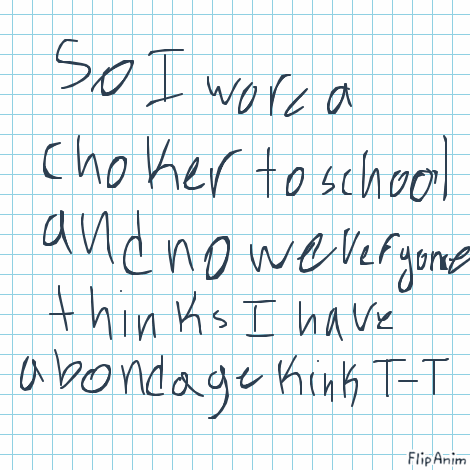 So I wore a
choker to school
and now everyone
thinks I have
a bondage kink T-T
FlipAnim